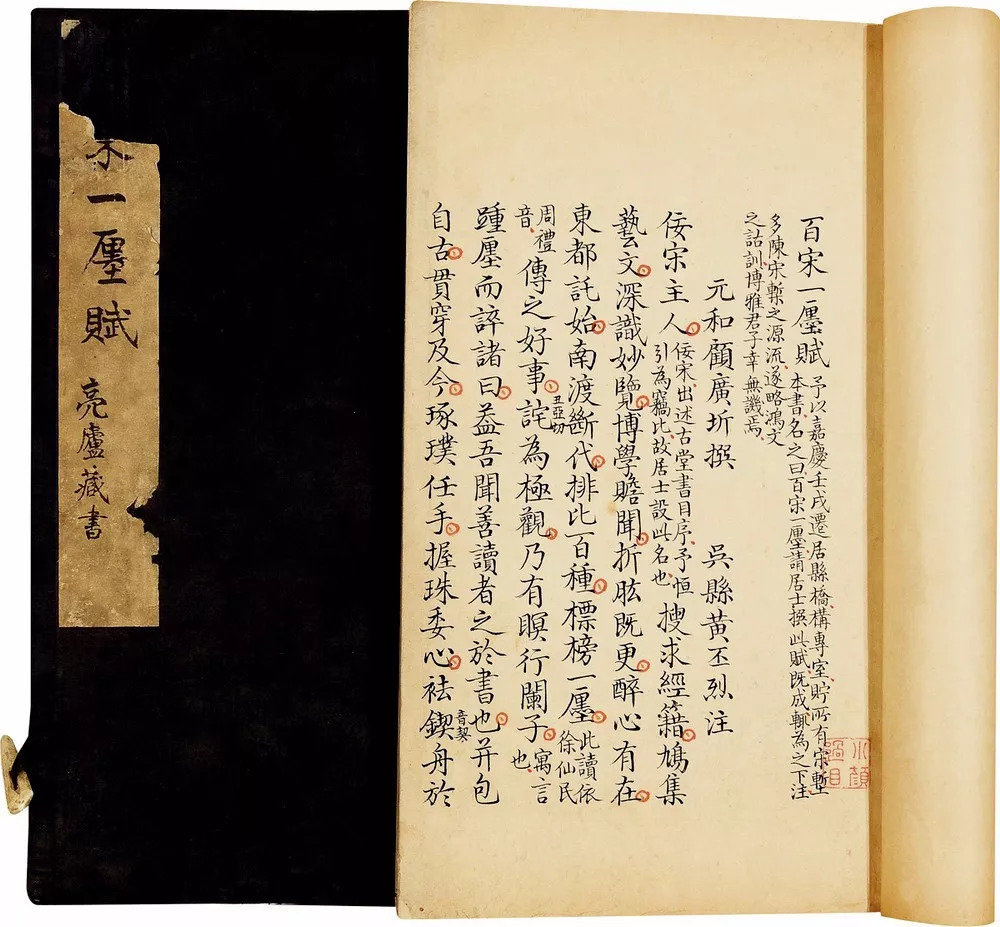 宋一廛賦
亮廬藏書
百宋一廛賦 予以嘉慶壬戌遷居縣橋構專室貯所有宋槧
本書名之曰百宋一廛請居士撰此賦既成輒為之下注
多陳宋槧之源流遂略鴻文
之詁訓博雅君子幸無譏焉
元和顧廣圻撰 吳縣黃丕烈注
佞宋主人 佞宋出述古堂書目序予恒引為竊比故居士設此名也 搜求經籍鳩集
藝文深識妙覽博學贍聞折肱既更醉心有在
東都託始南渡斷代排比百種標榜一廛 此讀依徐仙民
周禮音 傳之好事詫 丑亞切 為極觀乃有瞑行闌子 寓言也
踵廛而誶諸曰葢吾聞善讀者之於書也并包
自古貫穿及今琢璞任手握珠委心袪鍥 音契 舟於